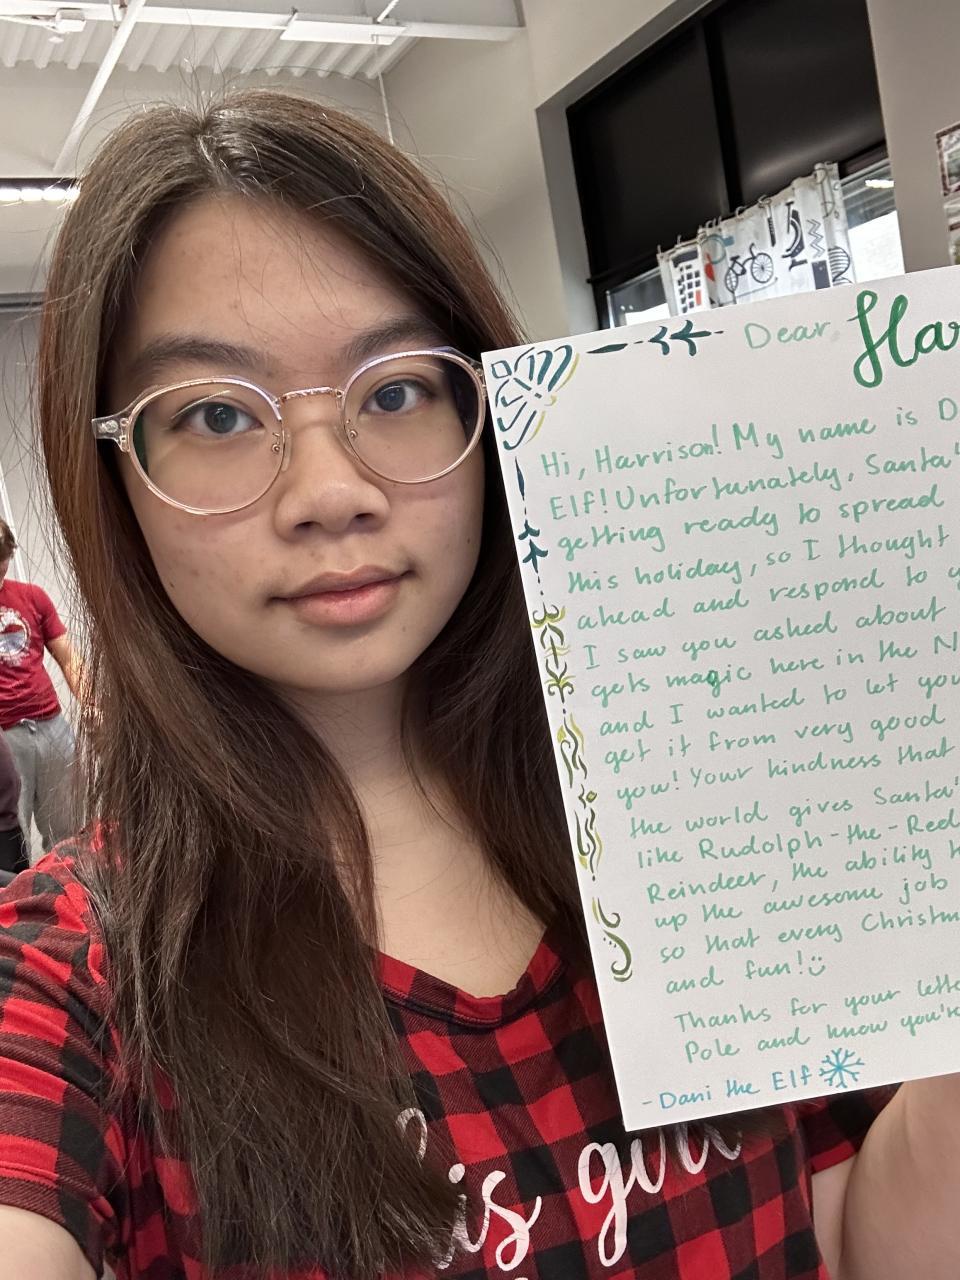 Dear
Hi, Harrison! My name is
Elf! Unfortunately, Santa's
getting ready to spread
this holiday, so I thought
ahead and respond to
I saw you asked about
gets magic here in the
and I wanted to let you
get it from very good
you! Your kindness that
the world gives Santa's
like Rudolph-the-Red
Reindeer, the ability
up the awesome job
so that every
and fun!
Thanks for your
Pole and know you're
-Dani the Elf
is girl